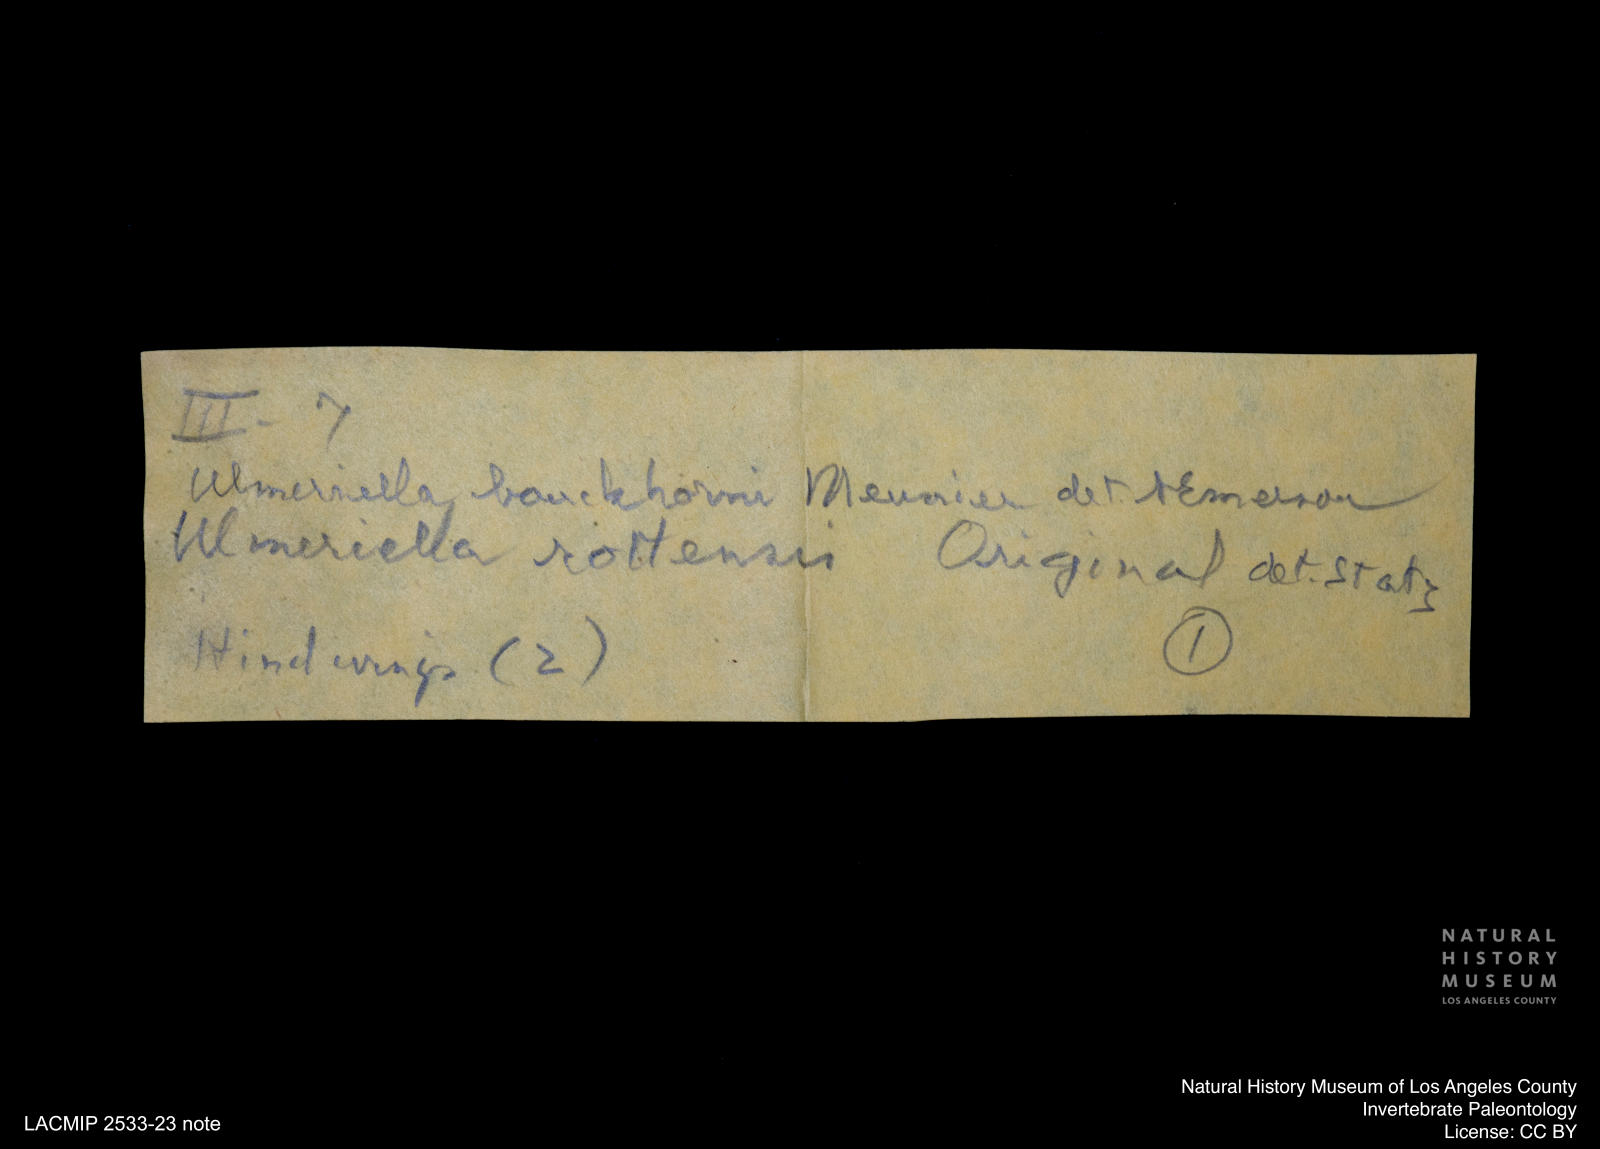 III - 7
Ulmeriella bauckhorni Meunier det. AEmerson
Ulmeriella rottensis Original det. Statz
Hind wings (2)
1
NATURAL
HISTORY
MUSEUM
LOS ANGELES COUNTY
Natural History Museum of Los Angeles County
Invertebrate Paleontology
License: CC BY
LACMIP 2533-23 note